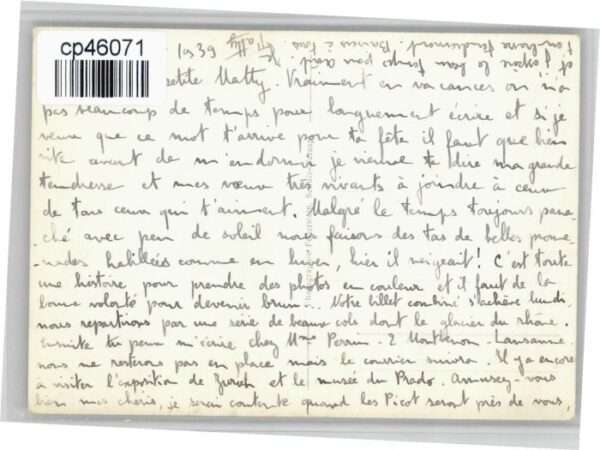 cp46071
1939
petite Matty. Vraiment en vacances on n'a
pas beaucoup de temps pour longuement écrire et si je
veux que ce mot t'arrive pour ta fête il faut que bien
vite avant de m'endormir je vienne te dire ma grande
tendresse et mes vœux très vivants à joindre à ceux
de tous ceux qui t'aiment. Malgré le temps toujours pana-
ché avec peu de soleil nous faisons des tas de belles prome-
nades habillées comme en hiver, hier il neigeait! C'est toute
une histoire pour prendre des photos en couleur et il faut de la
bonne volonté pour devenir brun... Notre billet combiné s'achève lundi.
nous repartirons par une série de beaux cols dont le glacier du Rhône.
Ensuite tu peux m'écrire chez Mme Perrin. 2 Lausanne.
nous ne resterons pas en place mais le courrier suivra. Il y a encore
à visiter l'exposition de Zurich et le musée du Prado. Amusez-vous
bien mes chéris, je serai contente quand les Picot seront près de vous,
et j'espère le bon temps pour août.
tendrement. Baisers à tous
Matty